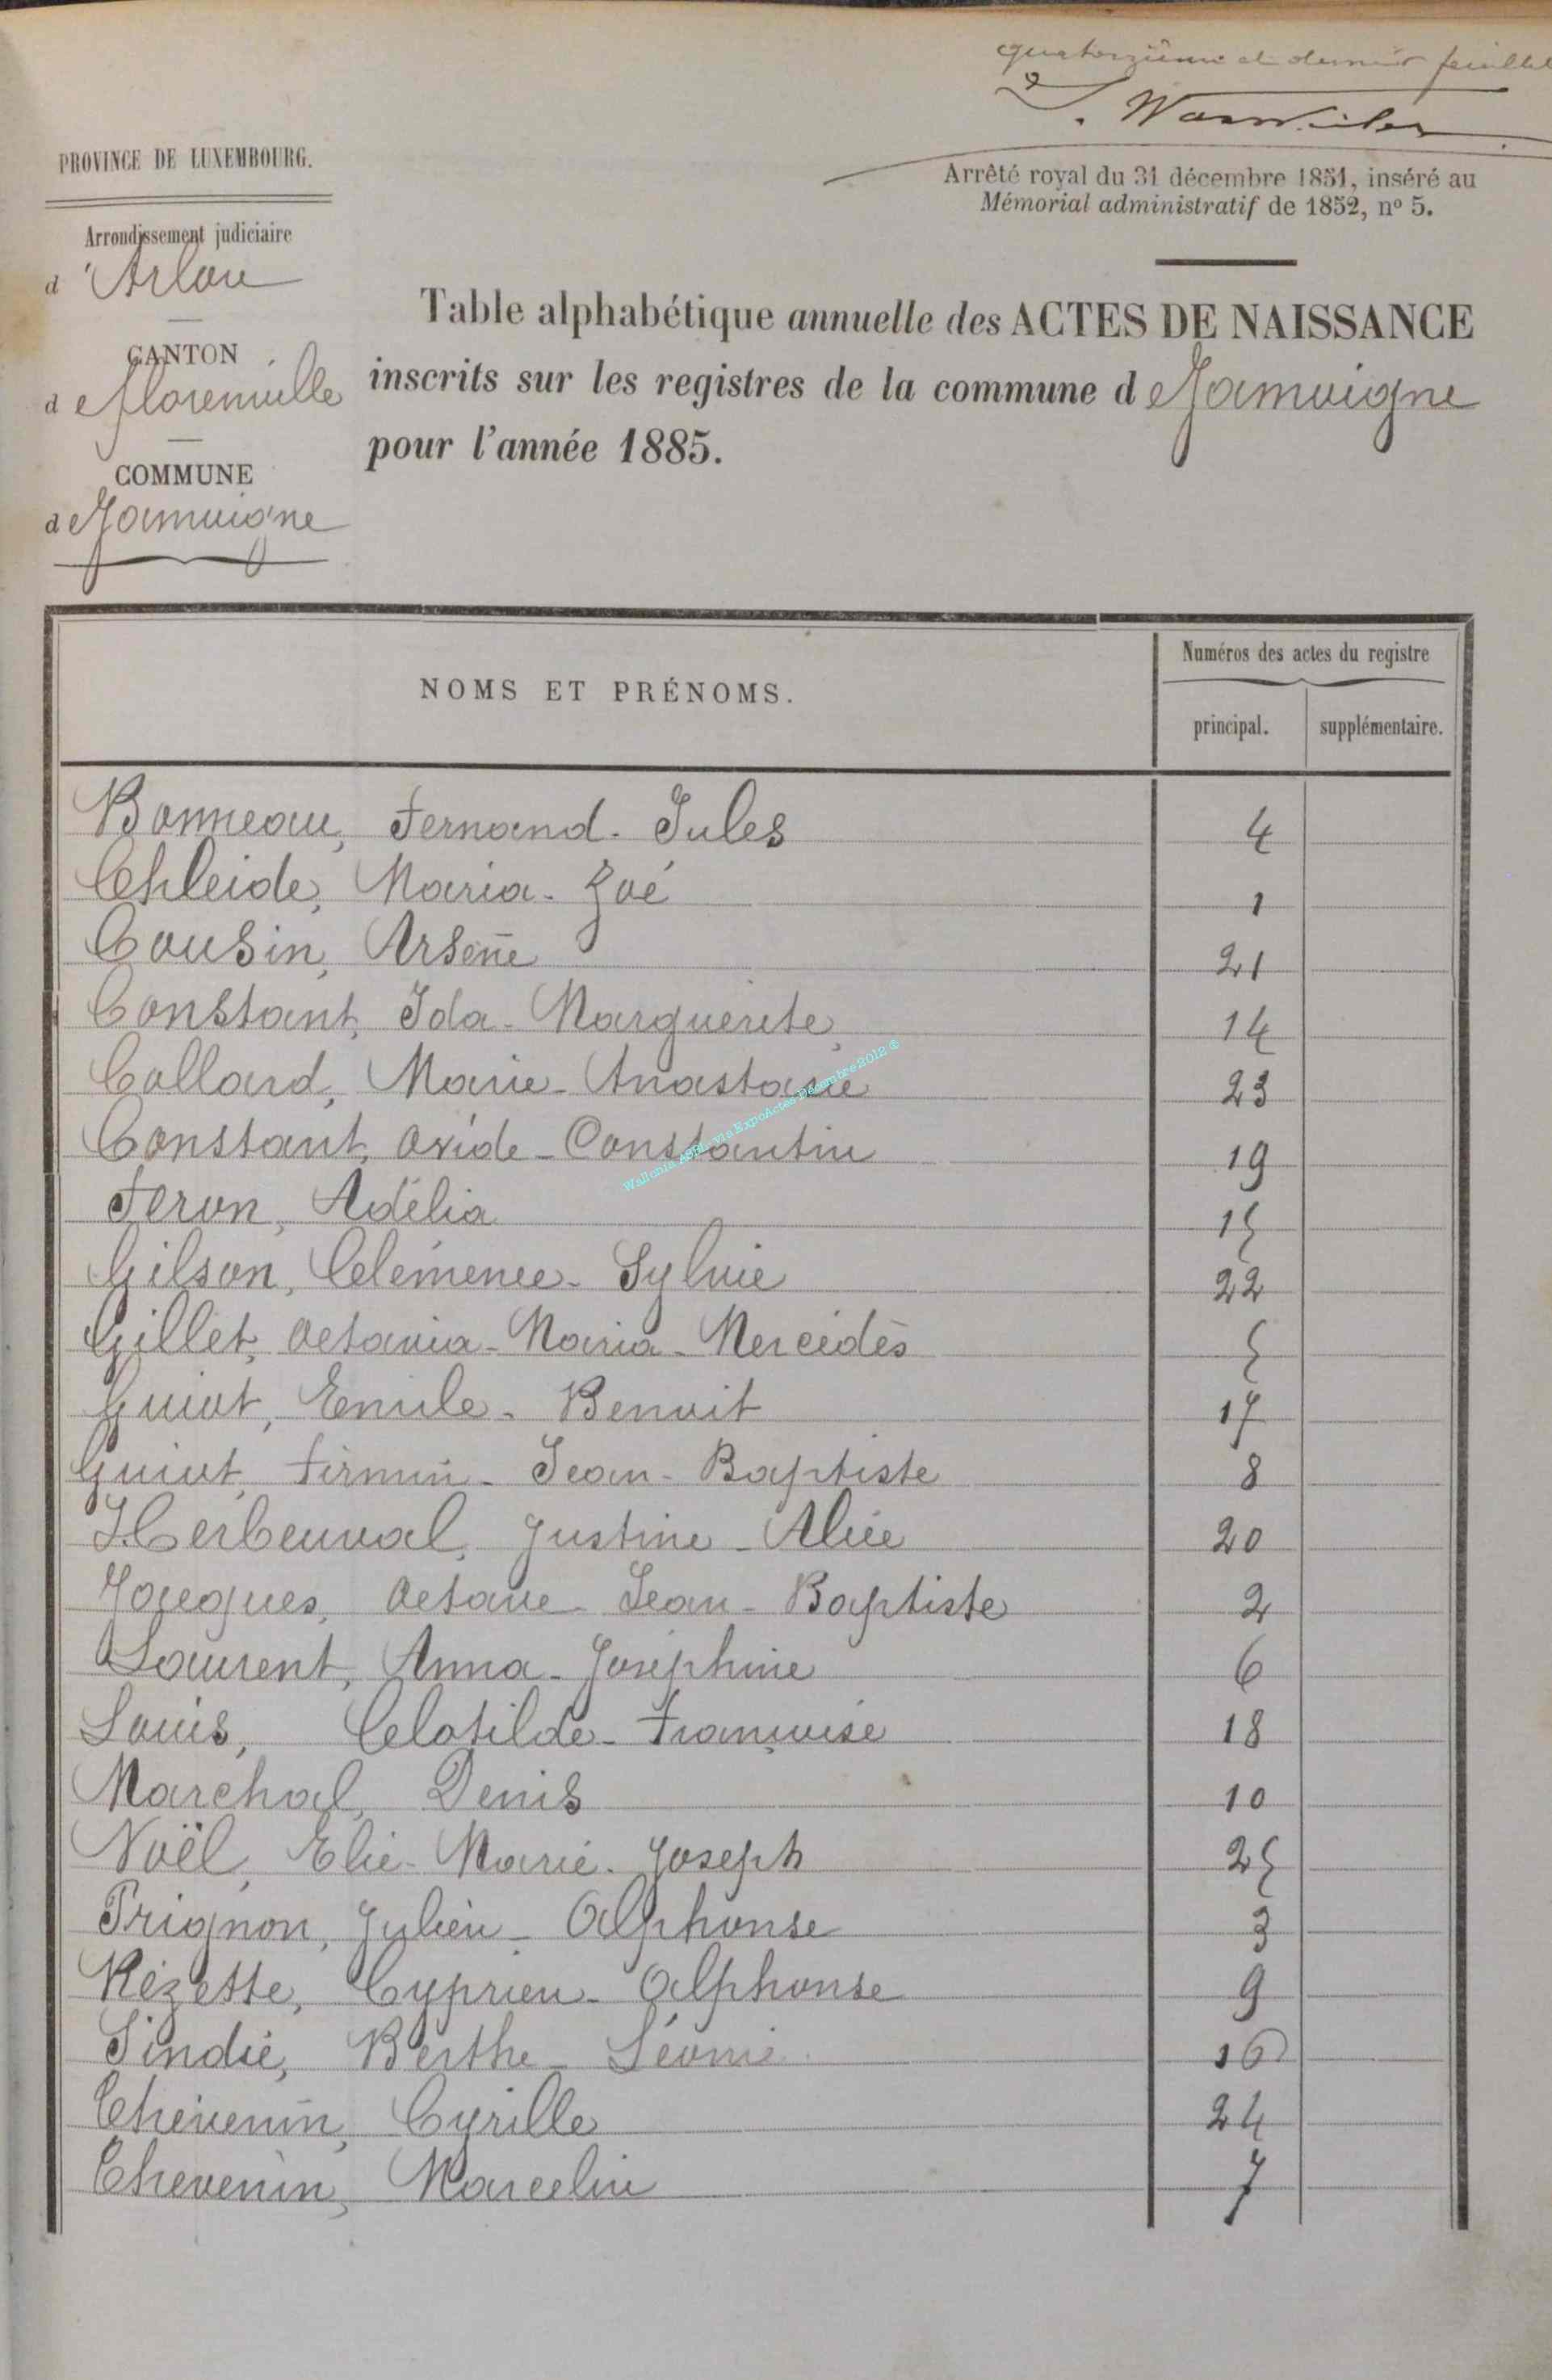 quatorzième et dernier feuillet
PROVINCE DE LUXEMBOURG.
Arrêté royal du 31 décembre 1851, inséré au
Mémorial administratif de 1852, nº 5.
Arrondissement judiciaire
d'Arlon
CANTON
de florenville
COMMUNE
de Jamoigne
Table alphabétique annuelle des ACTES DE NAISSANCE
inscrits sur les registres de la commune de Jamoigne
pour l'année 1885.
NOMS ET PRÉNOMS.
Numéros des actes du registre
principal. supplémentaire.
Bonneau, Fernand-Jules 4
Chleide, Maria-Zoé 1
Cousin, Arsène 21
Constant, Ida-Marguerite 14
Collard, Marie-Anastasie 23
Constant, Ovide-Constantin 19
Feron, Adélia 15
Gilson, Clémence-Sylvie 22
Gillet, Octavia-Maria-Mercédès 5
Guiot, Emile-Benoit 17
Guiot, Firmin-Jean-Baptiste 8
Herbeuval, Justine-Alice 20
Jacques, Octave-Jean-Baptiste 2
Laurent, Anna-Joséphine 6
Louis, Clotilde-Françoise 18
Marchal, Denis 10
Noël, Elie-Marie-Joseph 25
Prignon, Julien-Alphonse 3
Rézette, Cyprien-Alphonse 9
Sindié, Berthe-Léonie 16
Thévenin, Cyrille 24
Thevenin, Marcelin 7
Wallonia ASBL via ExpoActes Décembre 2012 ®